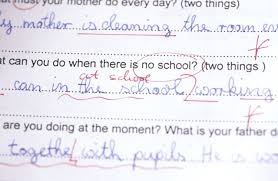 must your mother do every day? (two things)
my mother is cleaning the room
at can you do when there is no school? (two things)
got school
can in the school working
are you doing at the moment? What is your father d
together with pupils He is wor